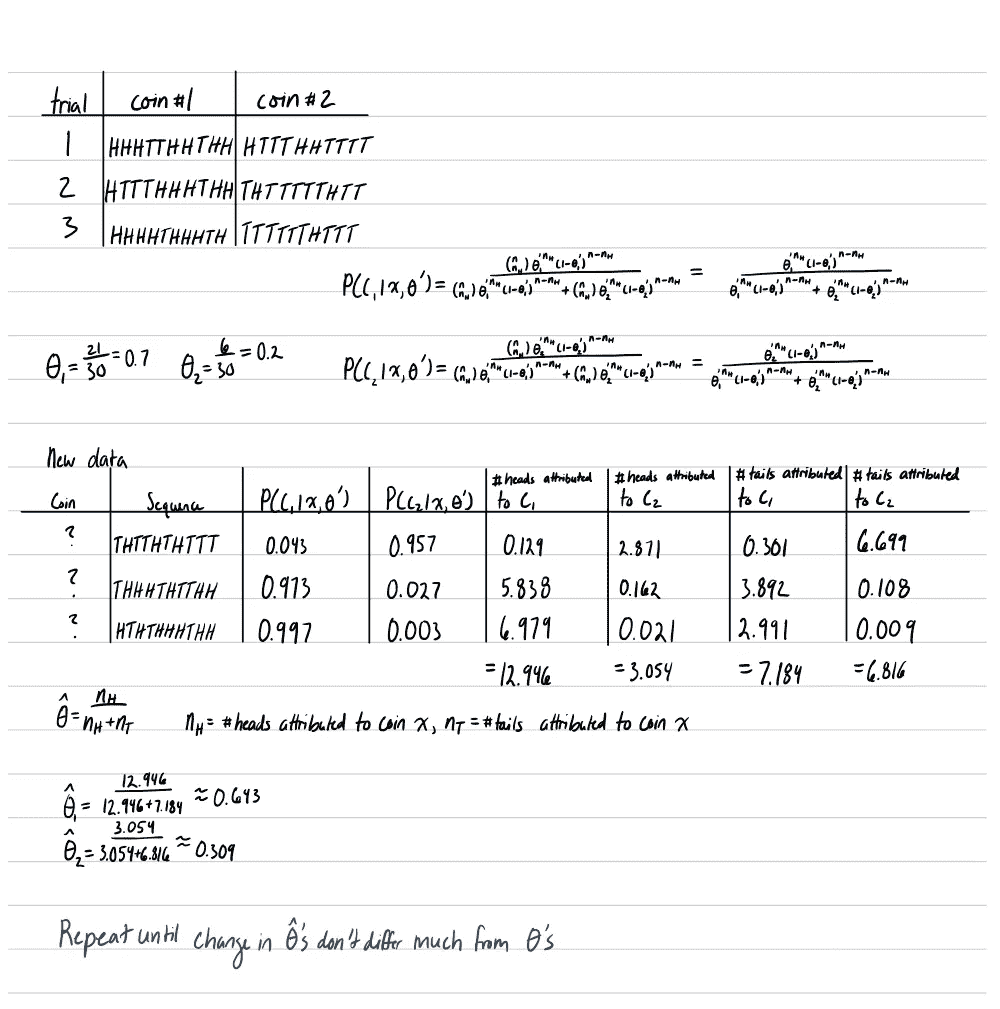 trial coin #1 coin #2
1 HHHTTHHTHH HTTTHHTTTT
2 HTTTHHHTHH THTTTTTHTT
3 HHHHTHHHTH TTTTTTHTTT
P(C₁|x,θ') = (n n_H) θ₁'^n_H (1-θ₁')^n-n_H / (n n_H) θ₁'^n_H (1-θ₁')^n-n_H + (n n_H) θ₂'^n_H (1-θ₂')^n-n_H = θ₁'^n_H (1-θ₁')^n-n_H / θ₁'^n_H (1-θ₁')^n-n_H + θ₂'^n_H (1-θ₂')^n-n_H
θ₁ = 21/30 = 0.7 θ₂ = 6/30 = 0.2 P(C₂|x,θ') = (n n_H) θ₂'^n_H (1-θ₂')^n-n_H / (n n_H) θ₁'^n_H (1-θ₁')^n-n_H + (n n_H) θ₂'^n_H (1-θ₂')^n-n_H = θ₂'^n_H (1-θ₂')^n-n_H / θ₁'^n_H (1-θ₁')^n-n_H + θ₂'^n_H (1-θ₂')^n-n_H
New data
Coin Sequence P(C₁|x,θ') P(C₂|x,θ') # heads attributed to C₁ # heads attributed to C₂ # tails attributed to C₁ # tails attributed to C₂
? THTTHTHTTT 0.043 0.957 0.129 2.871 0.301 6.699
? THHHTHTTHH 0.973 0.027 5.838 0.162 3.892 0.108
? HTHTHHHTHH 0.997 0.003 6.979 0.021 2.991 0.009
=12.946 =3.054 =7.184 =6.816
θ̂ = n_H / n_H+n_T n_H = # heads attributed to coin x, n_T = # tails attributed to coin x
θ̂₁ = 12.946 / 12.946+7.184 ≈ 0.643
θ̂₂ = 3.054 / 3.054+6.816 ≈ 0.309
Repeat until change in θ̂'s don't differ much from θ's